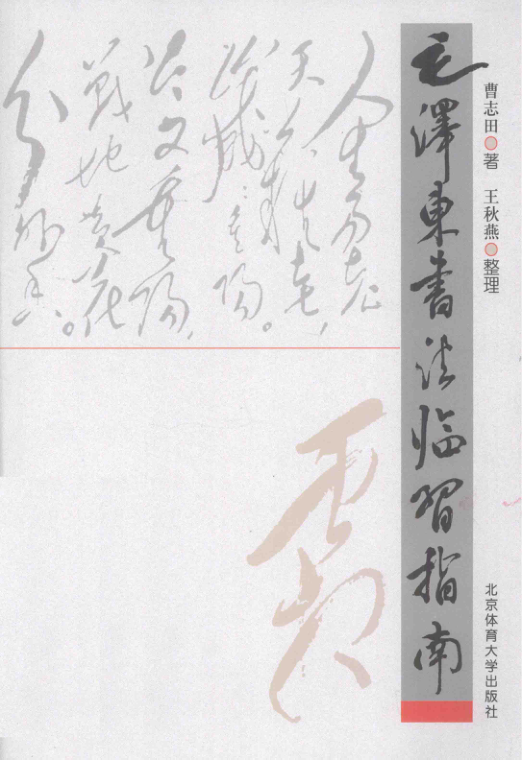 曹志田 著 王秋燕 整理
北京体育大学出版社
毛澤東書法临習指南
人生易老
天難老，
歲歲重陽。
今又重陽，
戰地黄花
分外香。